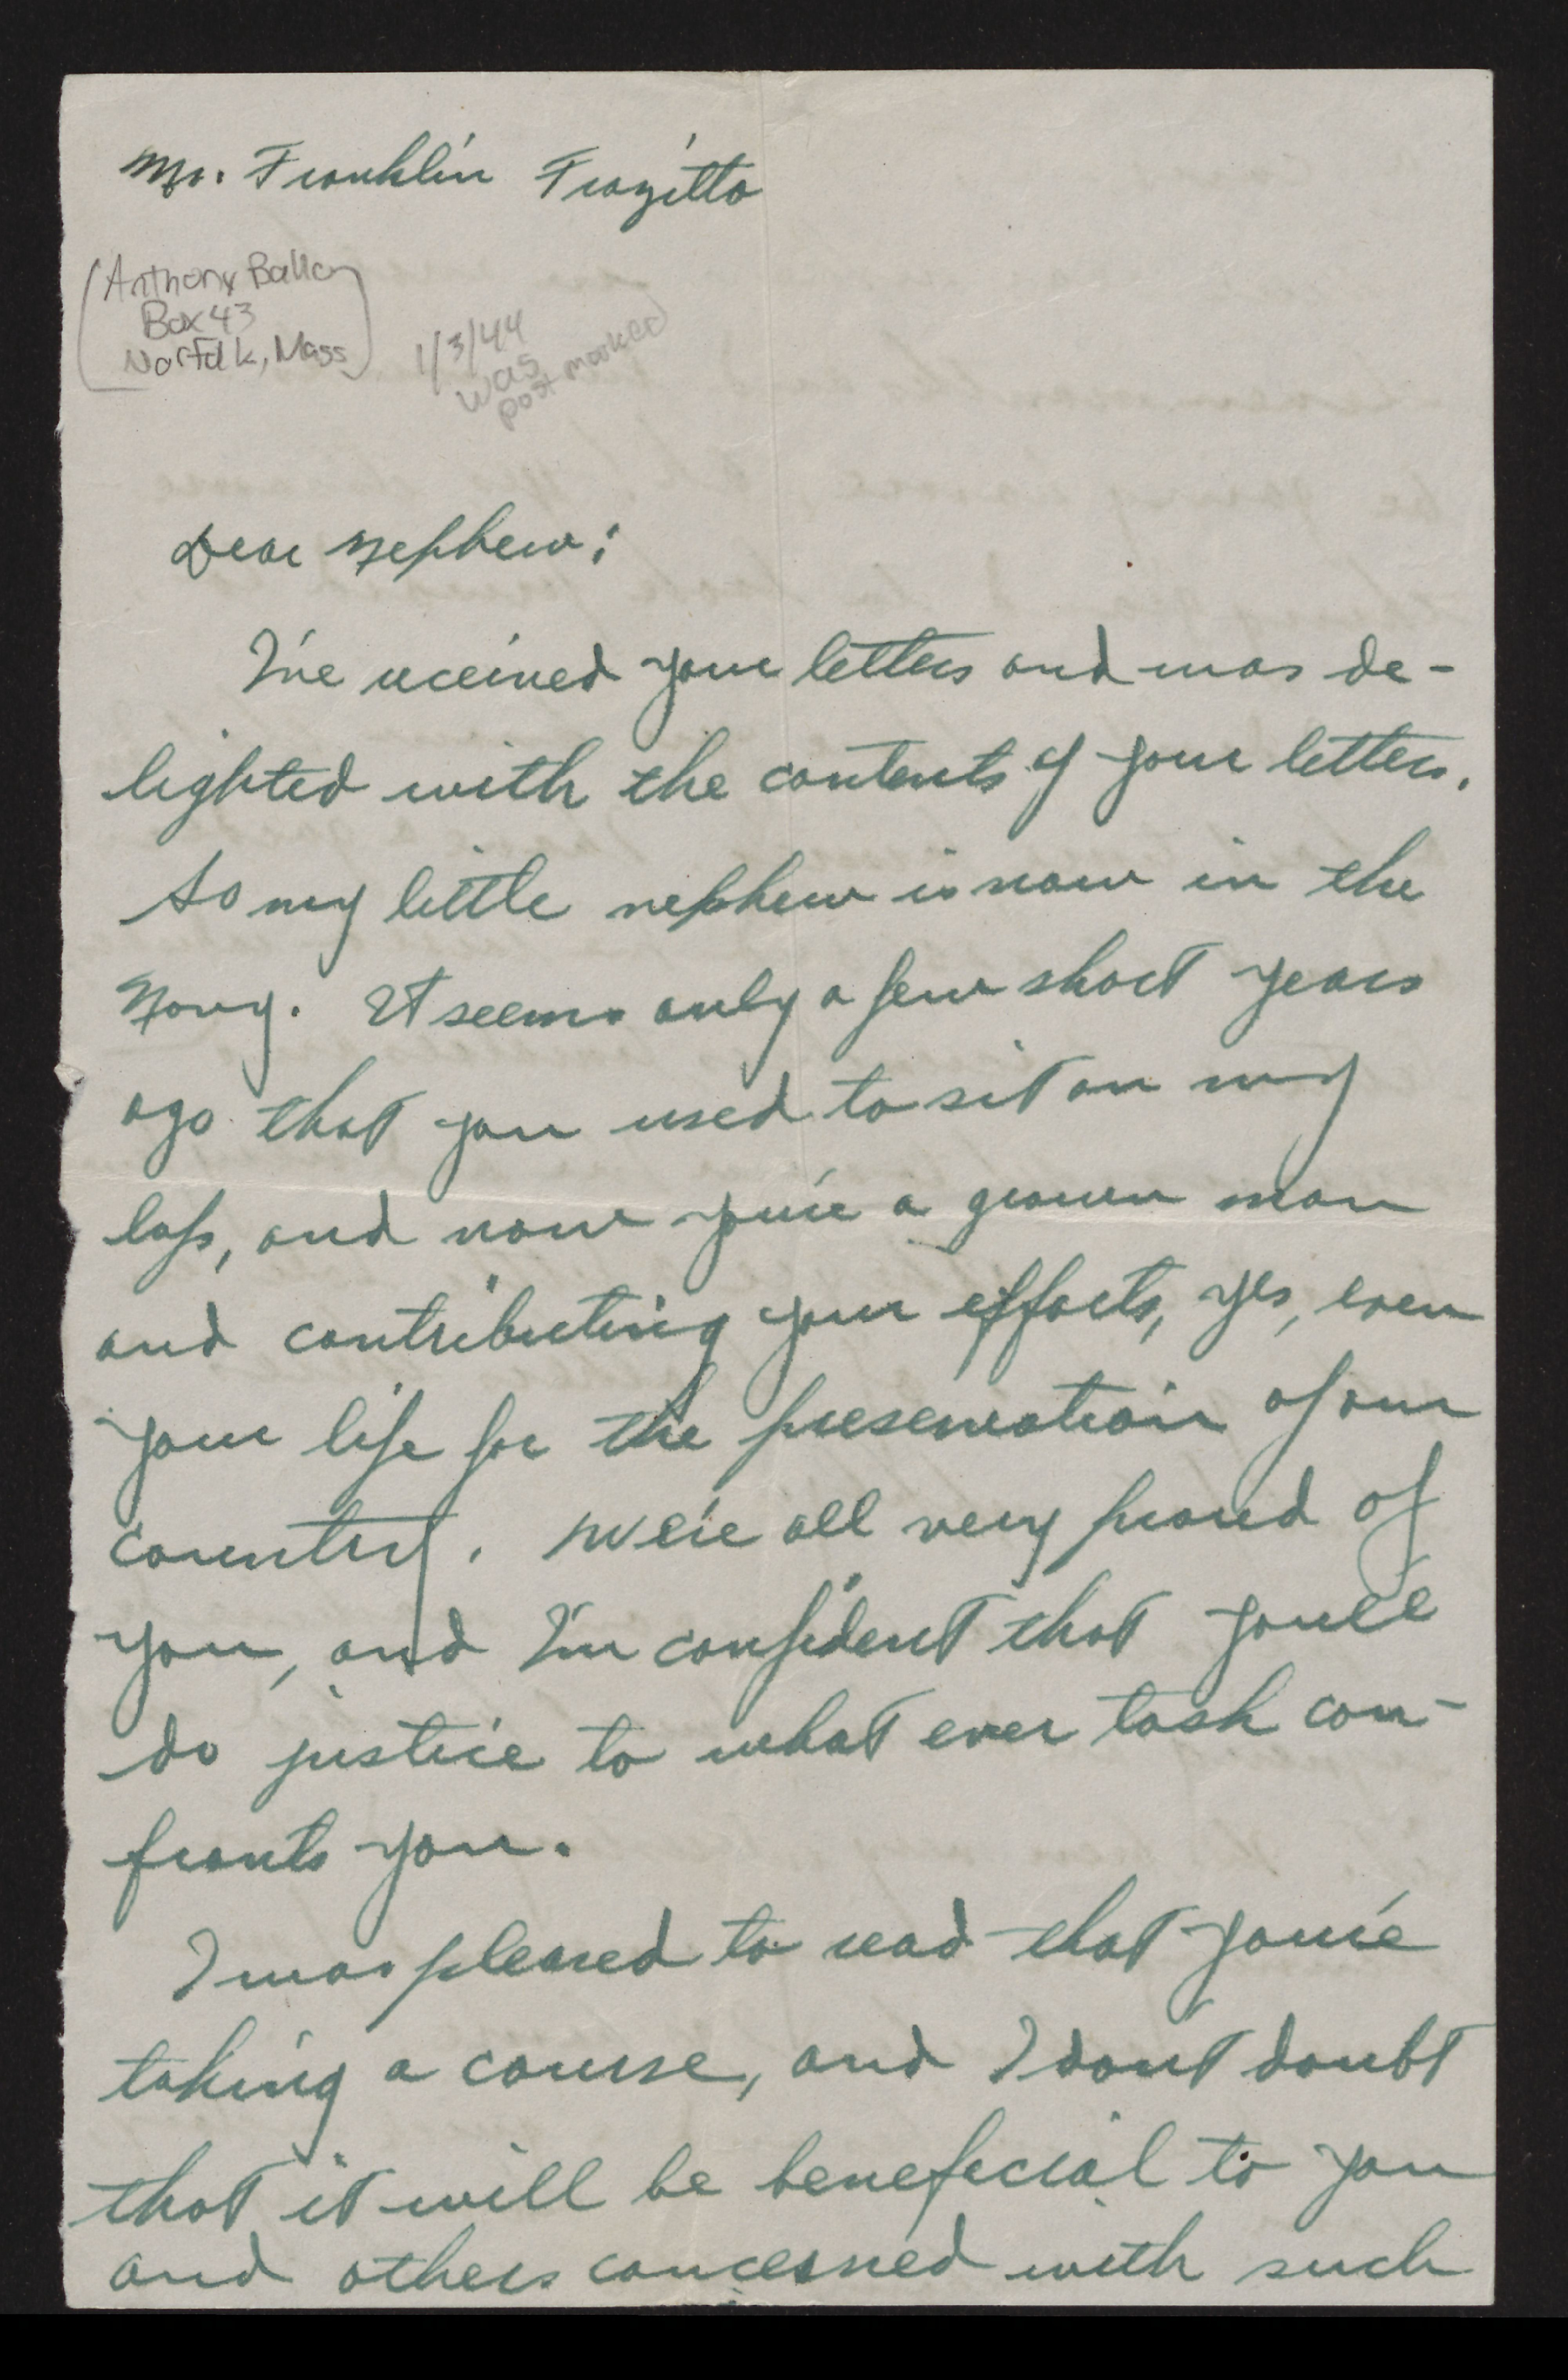 Mr. Franklin Frazitta
(Anthony Balla
Box 43
Norfolk, Mass)
1/3/44
was
post marked
Dear Nephew;
I've received your letters and was de-
lighted with the contents of your letters.
So my little nephew is now in the
Navy. It seems only a few short years
ago that you used to sit on my
lap, and now you're a grown man
and contributing your efforts, yes, even
your life for the preservation of our
country. We're all very proud of
you, and I'm confident that you'll
do justice to what ever task con-
fronts you.
I was pleased to read that you're
taking a course, and I don't doubt
that it will be benefecial to you
and others concerned with such